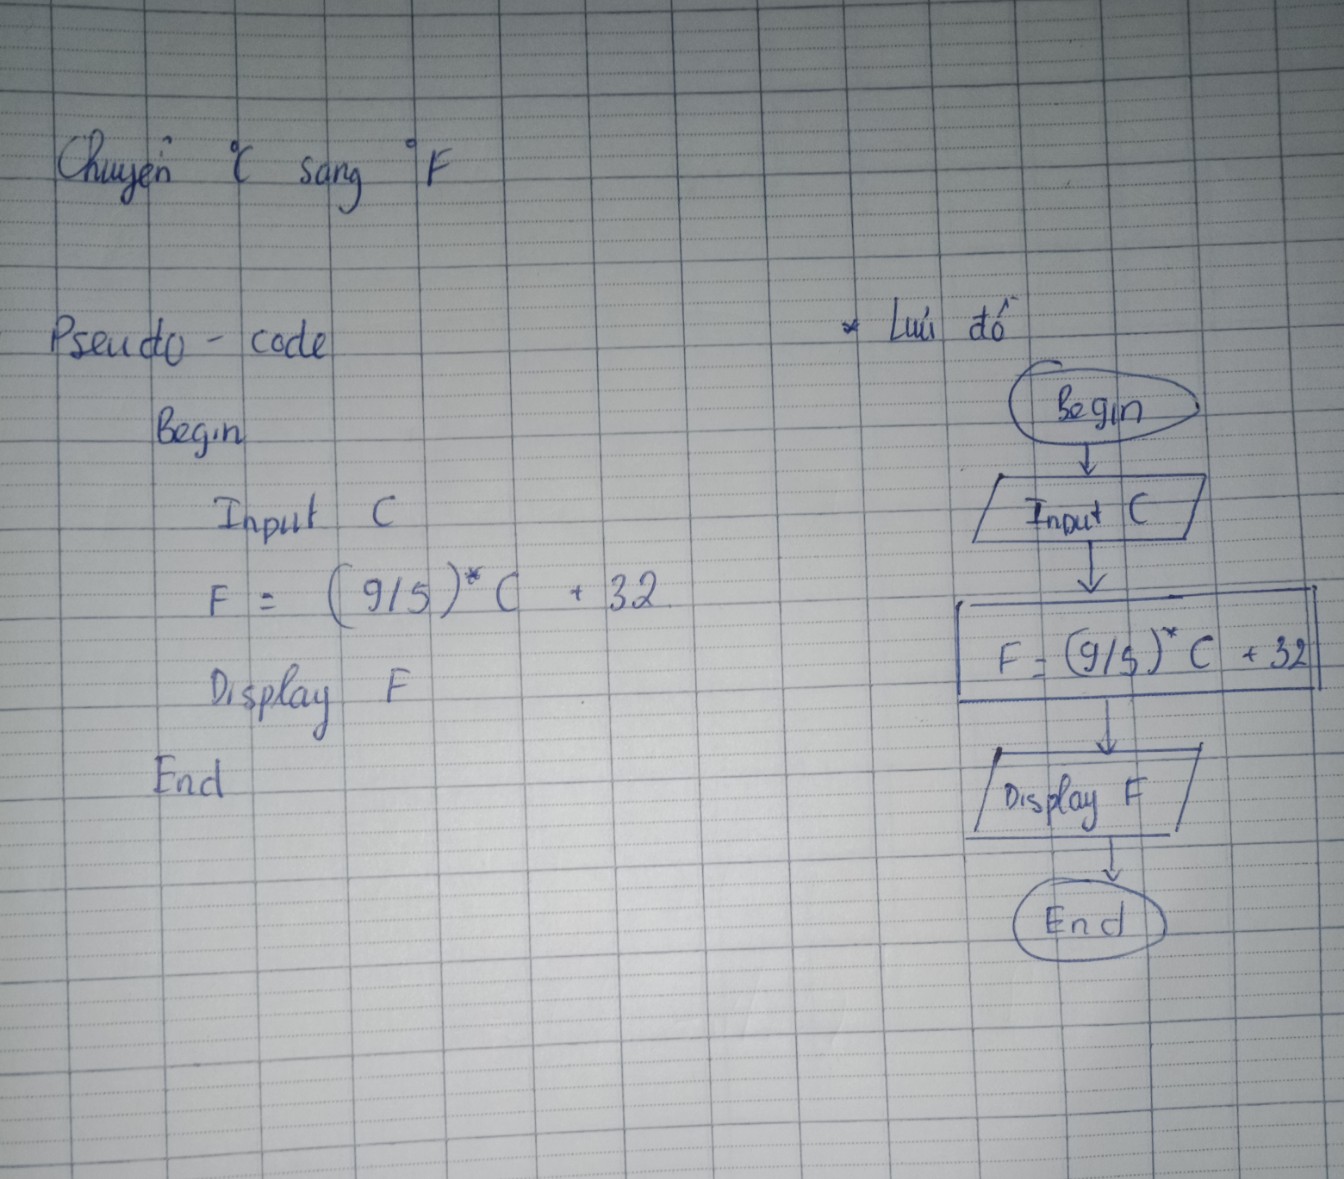 Chuyển °C sang °F
Pseudo - code
Begin
Input C
F = (9/5)* C + 32
Display F
End
* Lưu đồ
Begin
Input C
F = (9/5)* C + 32
Display F
End